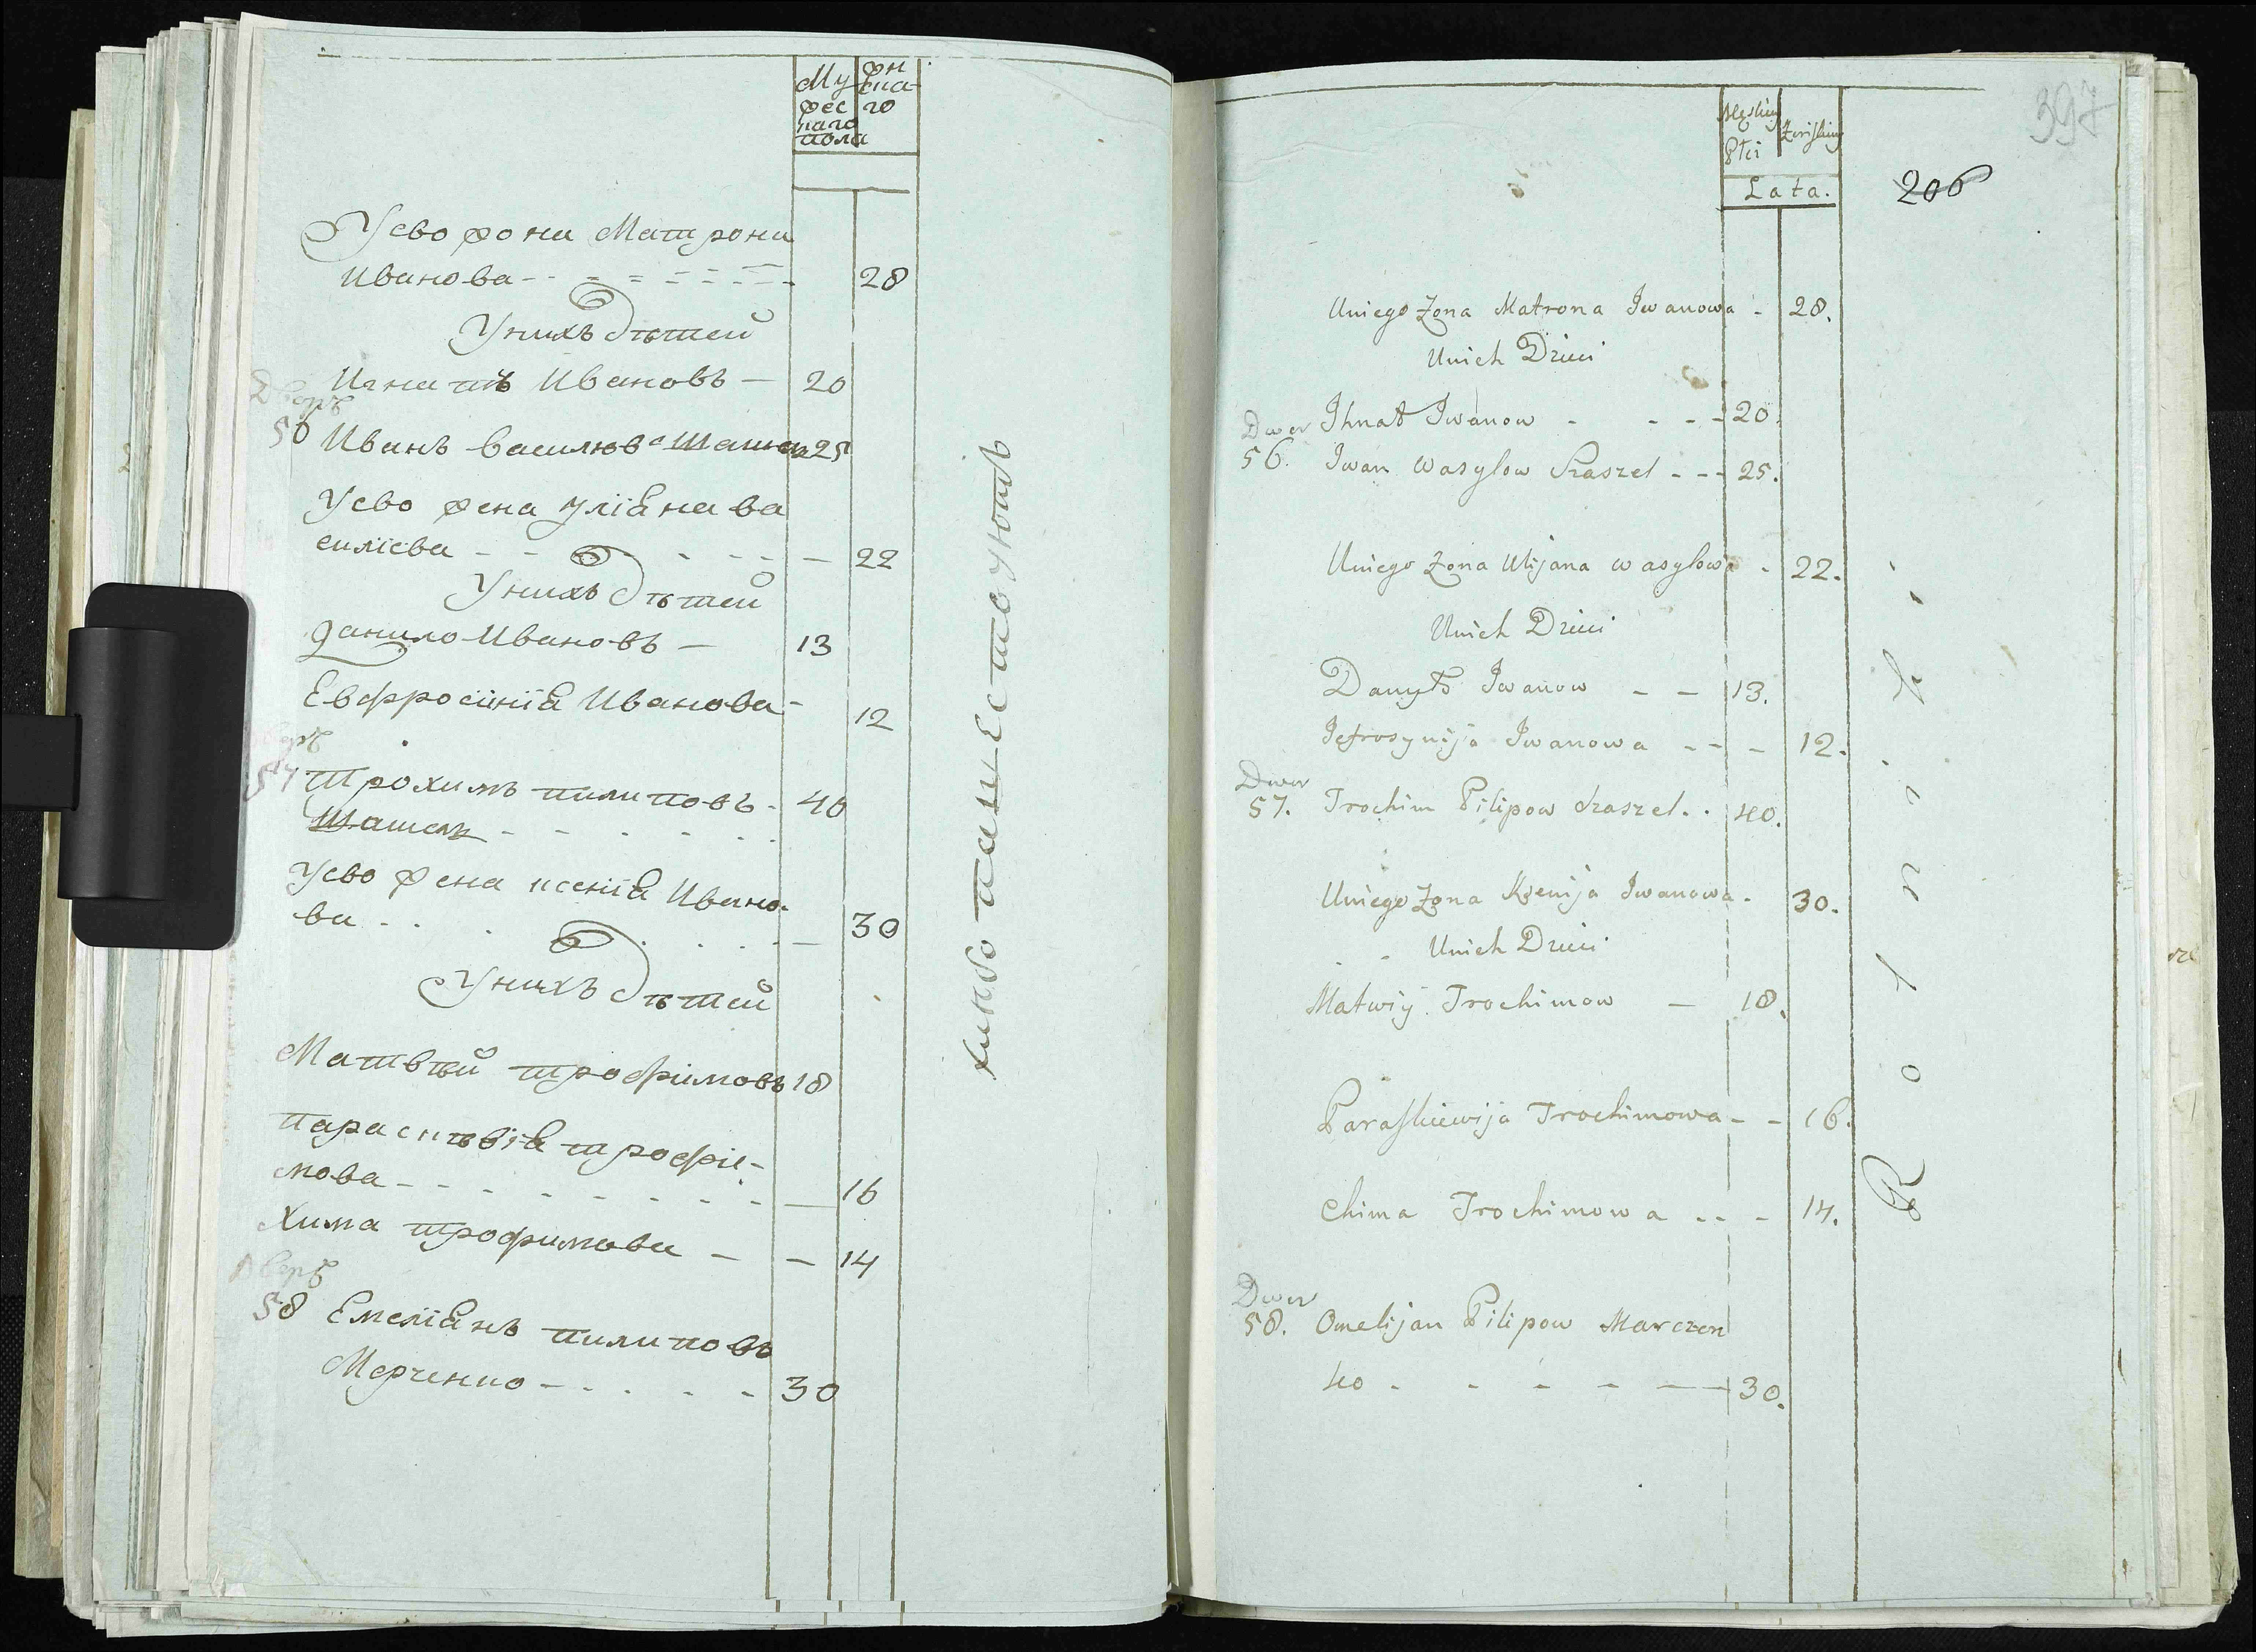 Му жен
жес ска
каго го
пола
У ево жона Матрона
Иванова - - - - - - - - 28
У нихъ дѣтей
Игнатъ Ивановъ — 20
Дворъ
56 Иванъ Василювъ Шашел 25
У ево жена Уліѧна Ва
силіева - - - - - — 22
У нихъ дѣтей
Данило Ивановъ — 13
Евфросинїѧ Иванова - 12
Дворъ
57 Трохимъ Пилиповъ - 40
Шашел - - - - - -
У ево жена Ксенїѧ Ивано-
ва - - - - - — 30
У нихъ дѣтей
Матвѣй Трофимовъ 18
Параскѣвїѧ Трофи-
мова - - - - - - - - — 16
Хима Трофимова — — 14
Дворъ
58 Емелїѧнъ Пилиповъ
Марченко - - - - - 30
397
206
Męskiey Żeńskiey
Płci
Lata.
U niego Żona Matrona Iwanowa - 28.
U nich Dzieci
Ihnat Iwanow - - - - 20.
Dwor
56. Iwan Wasylow Szaszel - - - 25.
U niego Żona Ulijana Wasylowa - 22.
U nich Dzieci
Danyło Iwanow - - 13.
Jefrosynija Iwanowa - - - 12.
Dwor
57. Trochim Pilipow Szaszel. . 40.
U niego Żona Ksenija Iwanowa - 30.
U nich Dzieci
Matwiy Trochimow — 18.
Paraskiewija Trochimowa - - 16.
Chima Trochimowa - - - 14.
Dwor
58. Omelijan Pilipow Marczen
ko - - - - — 30.